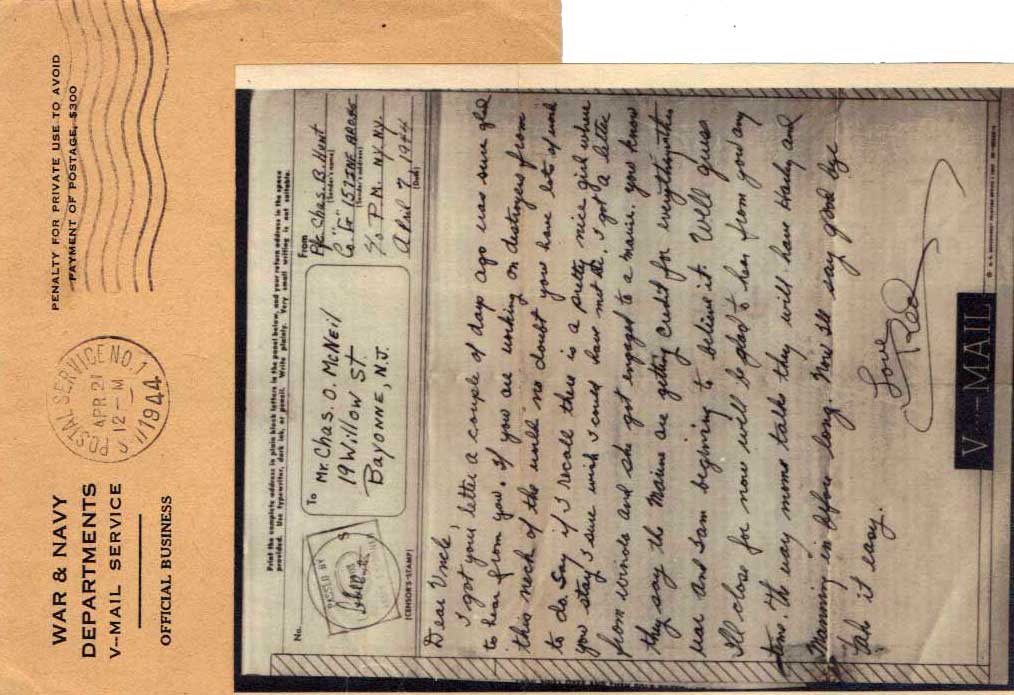 WAR & NAVY
DEPARTMENTS
V--MAIL SERVICE
OFFICIAL BUSINESS
U.S. POSTAL SERVICE NO. 1
APR 21
12 - M
1944
PENALTY FOR PRIVATE USE TO AVOID
PAYMENT OF POSTAGE, $300
Print the complete address in plain block letters in the panel below, and your return address in the space
provided. Use typewriter, dark ink, or pencil. Write plainly. Very small writing is not suitable.
No.
PASSED BY
(CENSOR'S STAMP)
To
Mr. Chas. O. McNeil
19 Willow St
Bayonne, N.J.
From
Pfc Chas. B. Hunt
(Sender's name)
Co. "F" 157 INF APO 45
(Sender's address)
c/o P.M. N.Y. N.Y.
April 7, 1944
(Date)
Dear Uncle,
I got your letter a couple of days ago was sure glad
to hear from you. If you are working on destroyers from
this neck of the well no doubt you have lots of work
to do. Say if I recall there is a pretty nice girl where
you stay, I sure wish I could have met her. I got a letter
from and she got engaged to a marine. You know
they say the Marines are getting credit for everything this
year and I am beginning to believe it. Well guess
I'll close for now will be glad to hear from you any
time. The way moms talk they will have Harly and
Manning in before long. Now I'll say good bye
Take it easy.
Love
Red
V···—MAIL